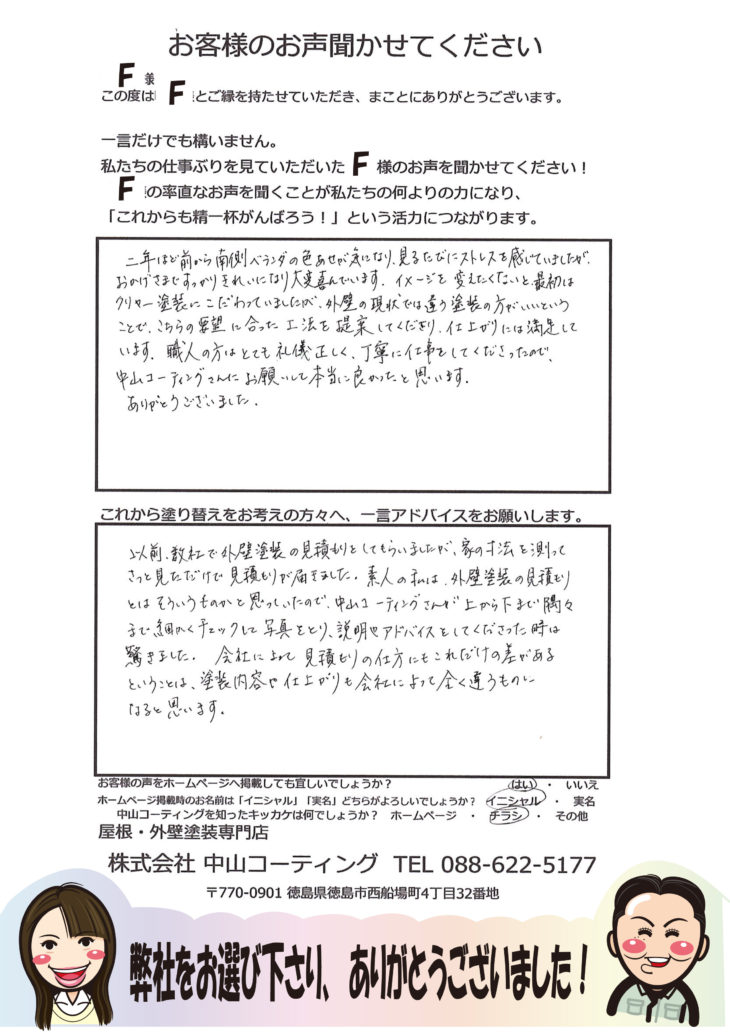 お客様のお声聞かせてください
F 様
この度は F とご縁を持たせていただき、まことにありがとうございます。
一言だけでも構いません。
私たちの仕事ぶりを見ていただいた F 様のお声を聞かせてください！
F の率直なお声を聞くことが私たちの何よりの力になり、
「これからも精一杯がんばろう！」という活力につながります。
二年ほど前から南側ベランダの色あせが気になり、見るたびにストレスを感じていましたが、
おかげさまですっかりきれいになり大変喜んでいます。イメージを変えたくないと最初は
クリヤー塗装にこだわっていましたが、外壁の現状では違う塗装の方がいいという
ことで、こちらの要望に合った工法を提案してくださり、仕上がりには満足して
います。職人の方はとても礼儀正しく、丁寧に仕事をしてくださったので、
中山コーティングさんにお願いして本当に良かったと思います。
ありがとうございました。
これから塗り替えをお考えの方々へ、一言アドバイスをお願いします。
以前、数社で外壁塗装の見積もりをしてもらいましたが、家の寸法を測って
さっと見ただけで見積もりが届きました。素人の私は、外壁塗装の見積もり
とはそういうものかと思っていたので、中山コーティングさんが上から下まで隅々
まで細かくチェックして写真をとり、説明やアドバイスをしてくださった時は
驚きました。会社によって見積もりの仕方にもこれだけの差がある
ということは、塗装内容や仕上がりも会社によって全く違うものに
なると思います。
お客様の声をホームページへ掲載しても宜しいでしょうか？ はい ・ いいえ
ホームページ掲載時のお名前は「イニシャル」「実名」どちらがよろしいでしょうか？ イニシャル ・ 実名
中山コーティングを知ったキッカケは何でしょうか？ ホームページ ・ チラシ ・ その他
屋根・外壁塗装専門店
株式会社 中山コーティング TEL 088-622-5177
〒770-0901 徳島県徳島市西船場町4丁目32番地
弊社をお選び下さり、ありがとうございました！